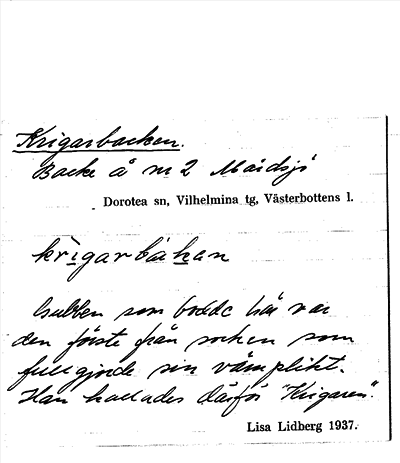 Krigarbacken.
Backe å nr 2 Mårdsjö
Dorotea sn, Vilhelmina tg, Västerbottens l.
krìgarbàkan
Gubben som bodde här var
den förste från socken som
fullgjorde sin värnplikt.
Han kallades därför "Krigaren".
Lisa Lidberg 1937.